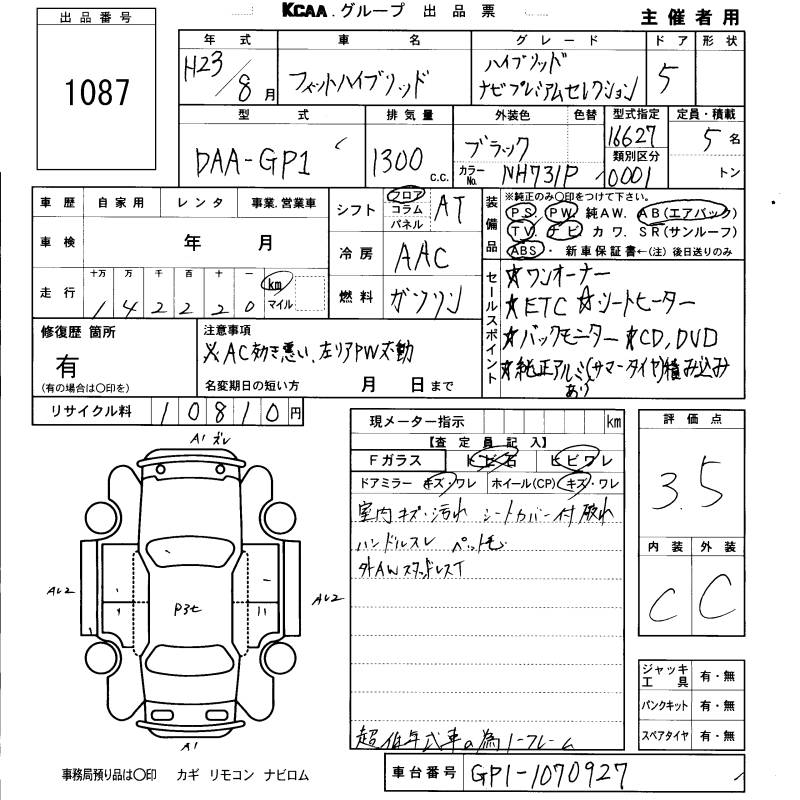 KCAA.グループ 出品票
主催者用
出品番号
1087
年式 車名 グレード ドア 形状
H23/8月 フィットハイブリッド ハイブリッド
ナビプレミアムセレクション 5
型式 排気量 外装色 色替 型式指定 定員・積載
DAA-GP1 1300 c.c. ブラック 16627 5名
類別区分
カラーNo. NH731P 0001 トン
車歴 自家用 レンタ 事業.営業車
車検 年 月
走行 十万 万 千 百 十 一 km マイル
142220
シフト フロア コラム パネル AT
冷房 AAC
燃料 ガソリン
装備品
※純正のみ○印をつけて下さい。
PS. PW. 純AW. AB(エアバック)
TV. ナビ カワ. SR(サンルーフ)
ABS. 新車保証書←(注)後日送りのみ
セールスポイント
☆ワンオーナー
☆ETC ☆シートヒーター
☆バックモニター ☆CD,DVD
☆純正アルミ(サマータイヤ)積み込み
あり
修復歴 箇所
有
(有の場合は○印を)
注意事項
※AC効き悪い、左リアPW不動
名変期日の短い方 月 日まで
リサイクル料 10810円
現メーター指示 km
【査定員記入】
Fガラス トビ石 ヒビワレ
ドアミラー キズ・ワレ ホイール(CP) キズ・ワレ
室内キズ・汚れ シートカバー付 破れ
ハンドルスレ ペットモ
外AWスタッドレスT
超低年式車の為ノークレーム
評価点
3.5
内装 外装
C C
ジャッキ工具 有・無
パンクキット 有・無
スペアタイヤ 有・無
A1 ズレ
AU2
P3t
AU2
A1
事務局預り品は○印 カギ リモコン ナビロム
車台番号 GP1-1070927